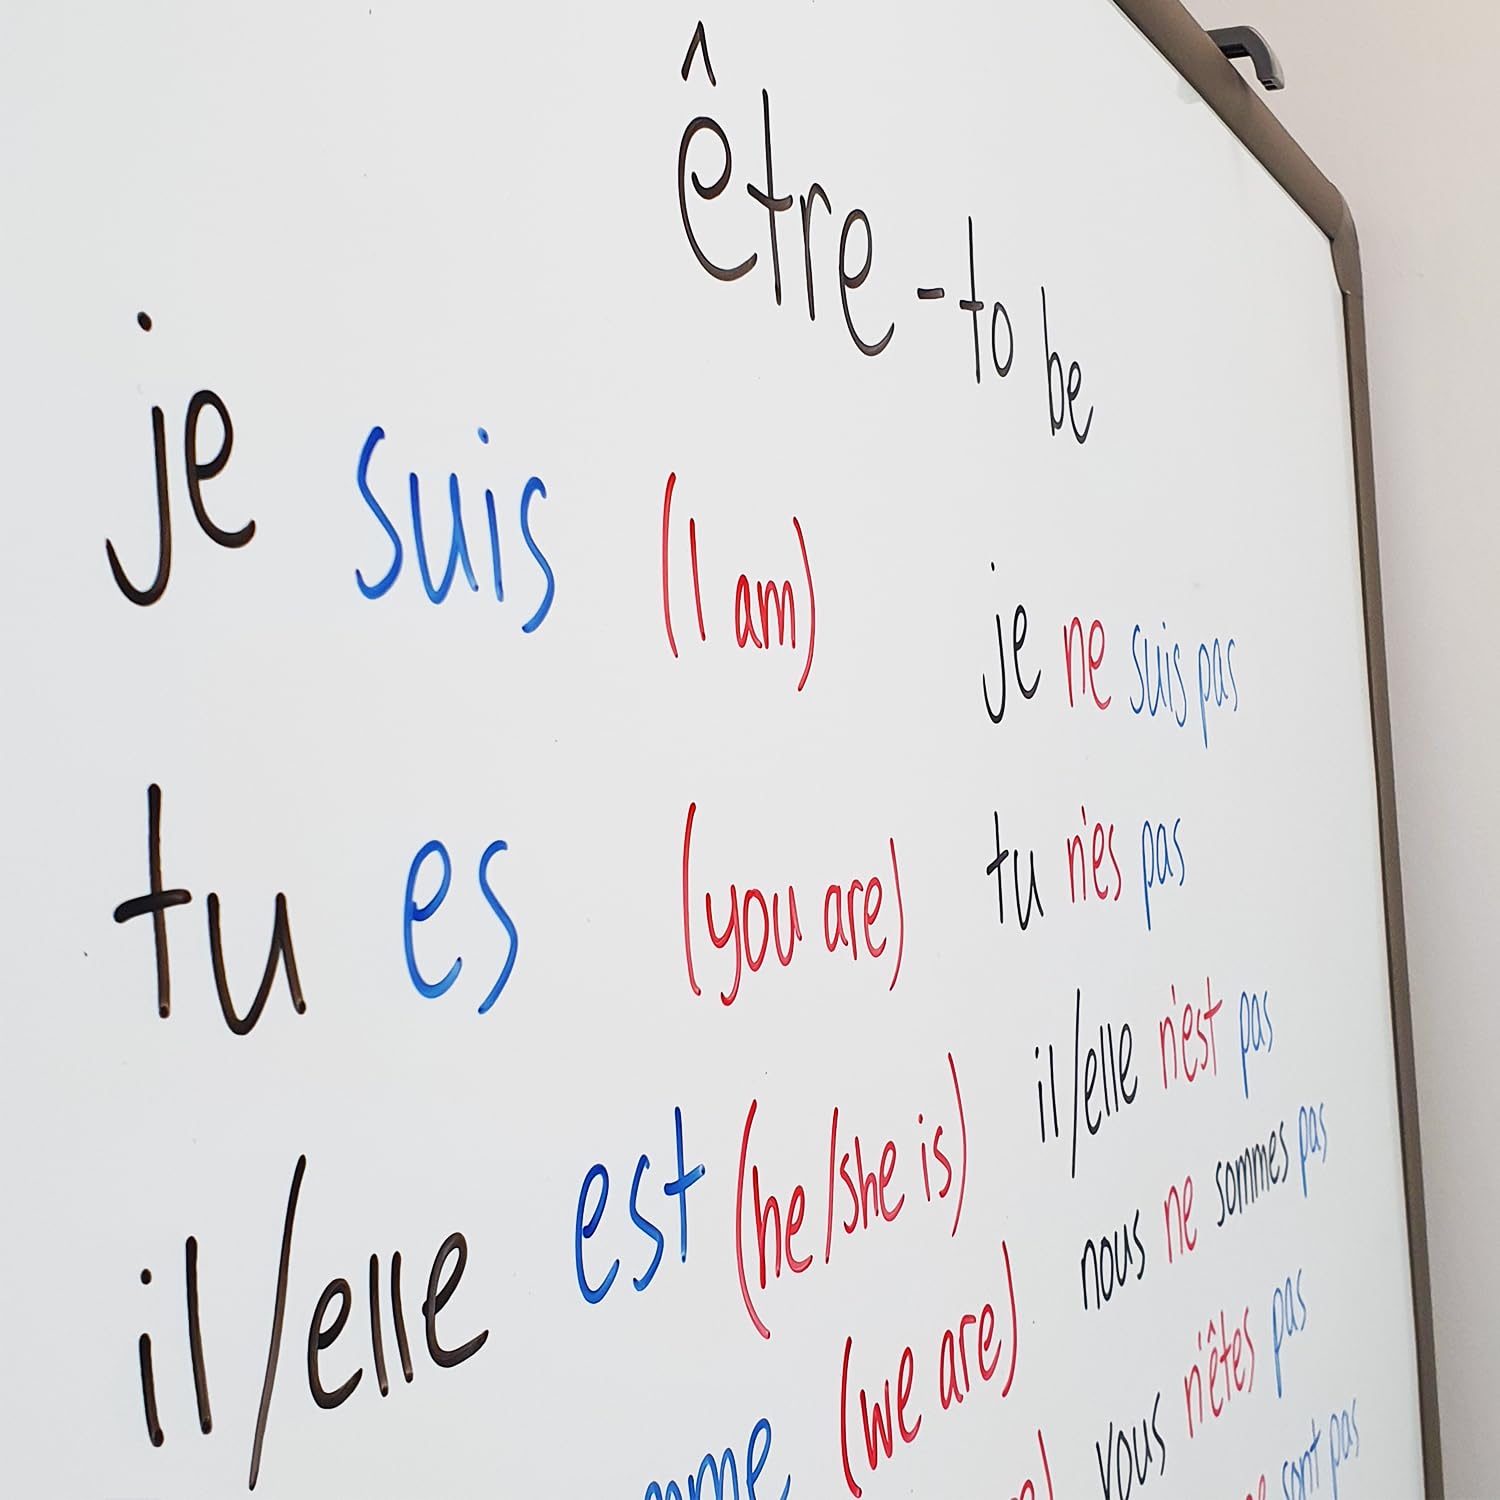 être - to be
je suis (I am)
je ne suis pas
tu es (you are)
tu n'es pas
il/elle est (he/she is)
il/elle n'est pas
(we are)
nous ne sommes pas
vous n'êtes pas
sont pas